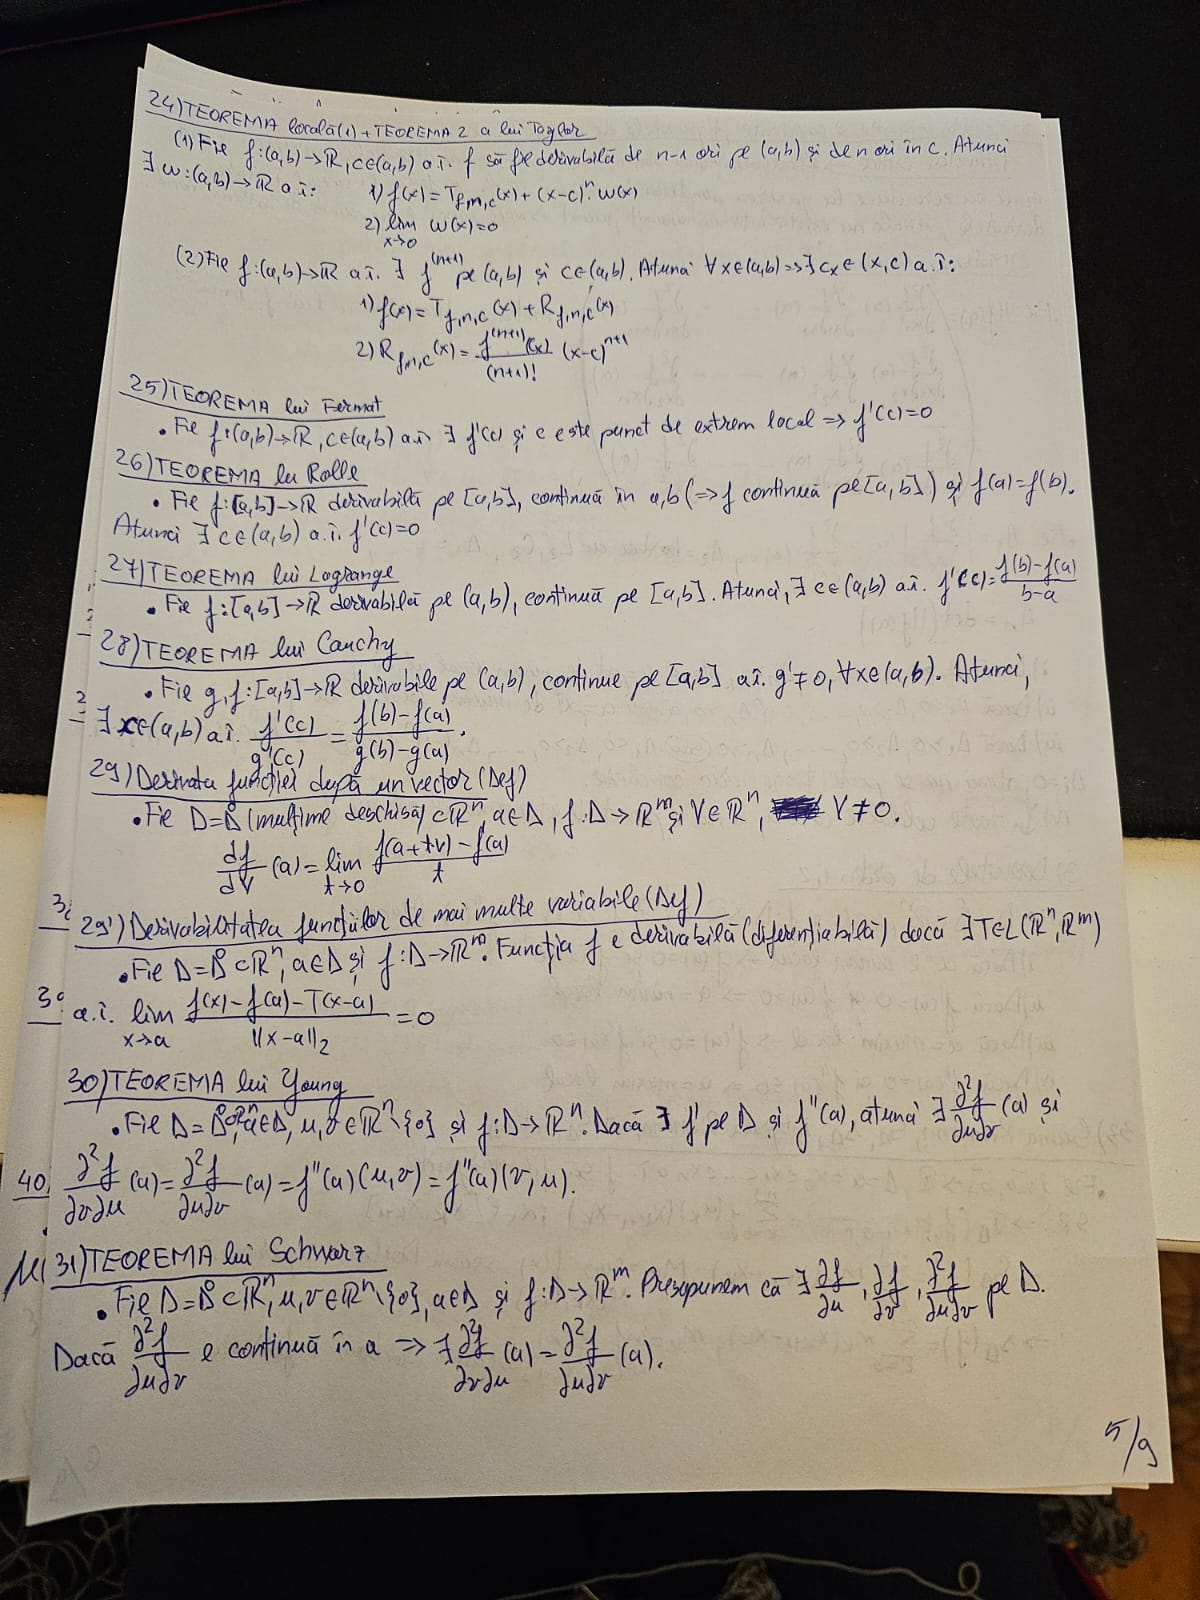 24) TEOREMA locală(1) + TEOREMA 2 a lui Taylor
(1) Fie f:(a,b)→ℝ, c∈(a,b) a.î. f să fie derivabilă de n-1 ori pe (a,b) și de n ori în c. Atunci
∃ω:(a,b)→ℝ a.î: 1) f(x)=T_{f,n,c}(x)+(x-c)^n·ω(x)
2) lim_{x→0} ω(x)=0
(2) Fie f:(a,b)→ℝ a.î. ∃ f^{(n+1)} pe (a,b) și c∈(a,b). Atunci ∀x∈(a,b)=>∃c_x∈(x,c) a.î:
1) f(x)=T_{f,n,c}(x)+R_{f,n,c}(x)
2) R_{f,n,c}(x)=f^{(n+1)}(x)/(n+1)! (x-c)^{n+1}
25) TEOREMA lui Fermat
• Fie f:(a,b)→ℝ, c∈(a,b) a.î. ∃ f'(c) și c este punct de extrem local => f'(c)=0
26) TEOREMA lu Rolle
• Fie f:[a,b]→ℝ derivabilă pe [a,b], continuă în a,b (=>f continuă pe [a,b]) și f(a)=f(b).
Atunci ∃ c∈(a,b) a.î. f'(c)=0
27) TEOREMA lui Lagrange
• Fie f:[a,b]→ℝ derivabilă pe (a,b), continuă pe [a,b]. Atunci, ∃ c∈(a,b) a.î. f'(c)=(f(b)-f(a))/(b-a)
28) TEOREMA lui Cauchy
• Fie g,f:[a,b]→ℝ derivabile pe (a,b), continue pe [a,b] a.î. g'≠0, ∀x∈(a,b). Atunci,
∃ c∈(a,b) a.î. f'(c)/g'(c)=(f(b)-f(a))/(g(b)-g(a)).
29) Derivata funcției după un vector (Def)
• Fie D=D̊ (mulțime deschisă) ⊂ℝ^n, a∈D, f:D→ℝ^m și V∈ℝ^n, V≠0.
df/dV (a)=lim_{t→0} (f(a+tv)-f(a))/t
29') Derivabilitatea funcțiilor de mai multe variabile (Def)
• Fie D=D̊⊂ℝ^n, a∈D și f:D→ℝ^m. Funcția f e derivabilă (diferențiabilă) dacă ∃T∈L(ℝ^n,ℝ^m)
a.î. lim_{x→a} (f(x)-f(a)-T(x-a))/||x-a||_2 =0
30) TEOREMA lui Young
• Fie D=D̊⊂ℝ^n, a∈D, u,v∈ℝ^n\{0} și f:D→ℝ^n. Dacă ∃ f' pe D și f''(a), atunci ∃ ∂²f/∂u∂v (a) și
40 ∂²f/∂v∂u (a)=∂²f/∂u∂v (a)=f''(a)(u,v)=f''(a)(v,u).
31) TEOREMA lui Schwarz
• Fie D=D̊⊂ℝ^n, u,v∈ℝ^n\{0}, a∈D și f:D→ℝ^m. Presupunem că ∃ ∂f/∂u, ∂f/∂v, ∂²f/∂u∂v pe D.
Dacă ∂²f/∂u∂v e continuă în a => ∃ ∂²f/∂v∂u (a)=∂²f/∂u∂v (a).
5/9